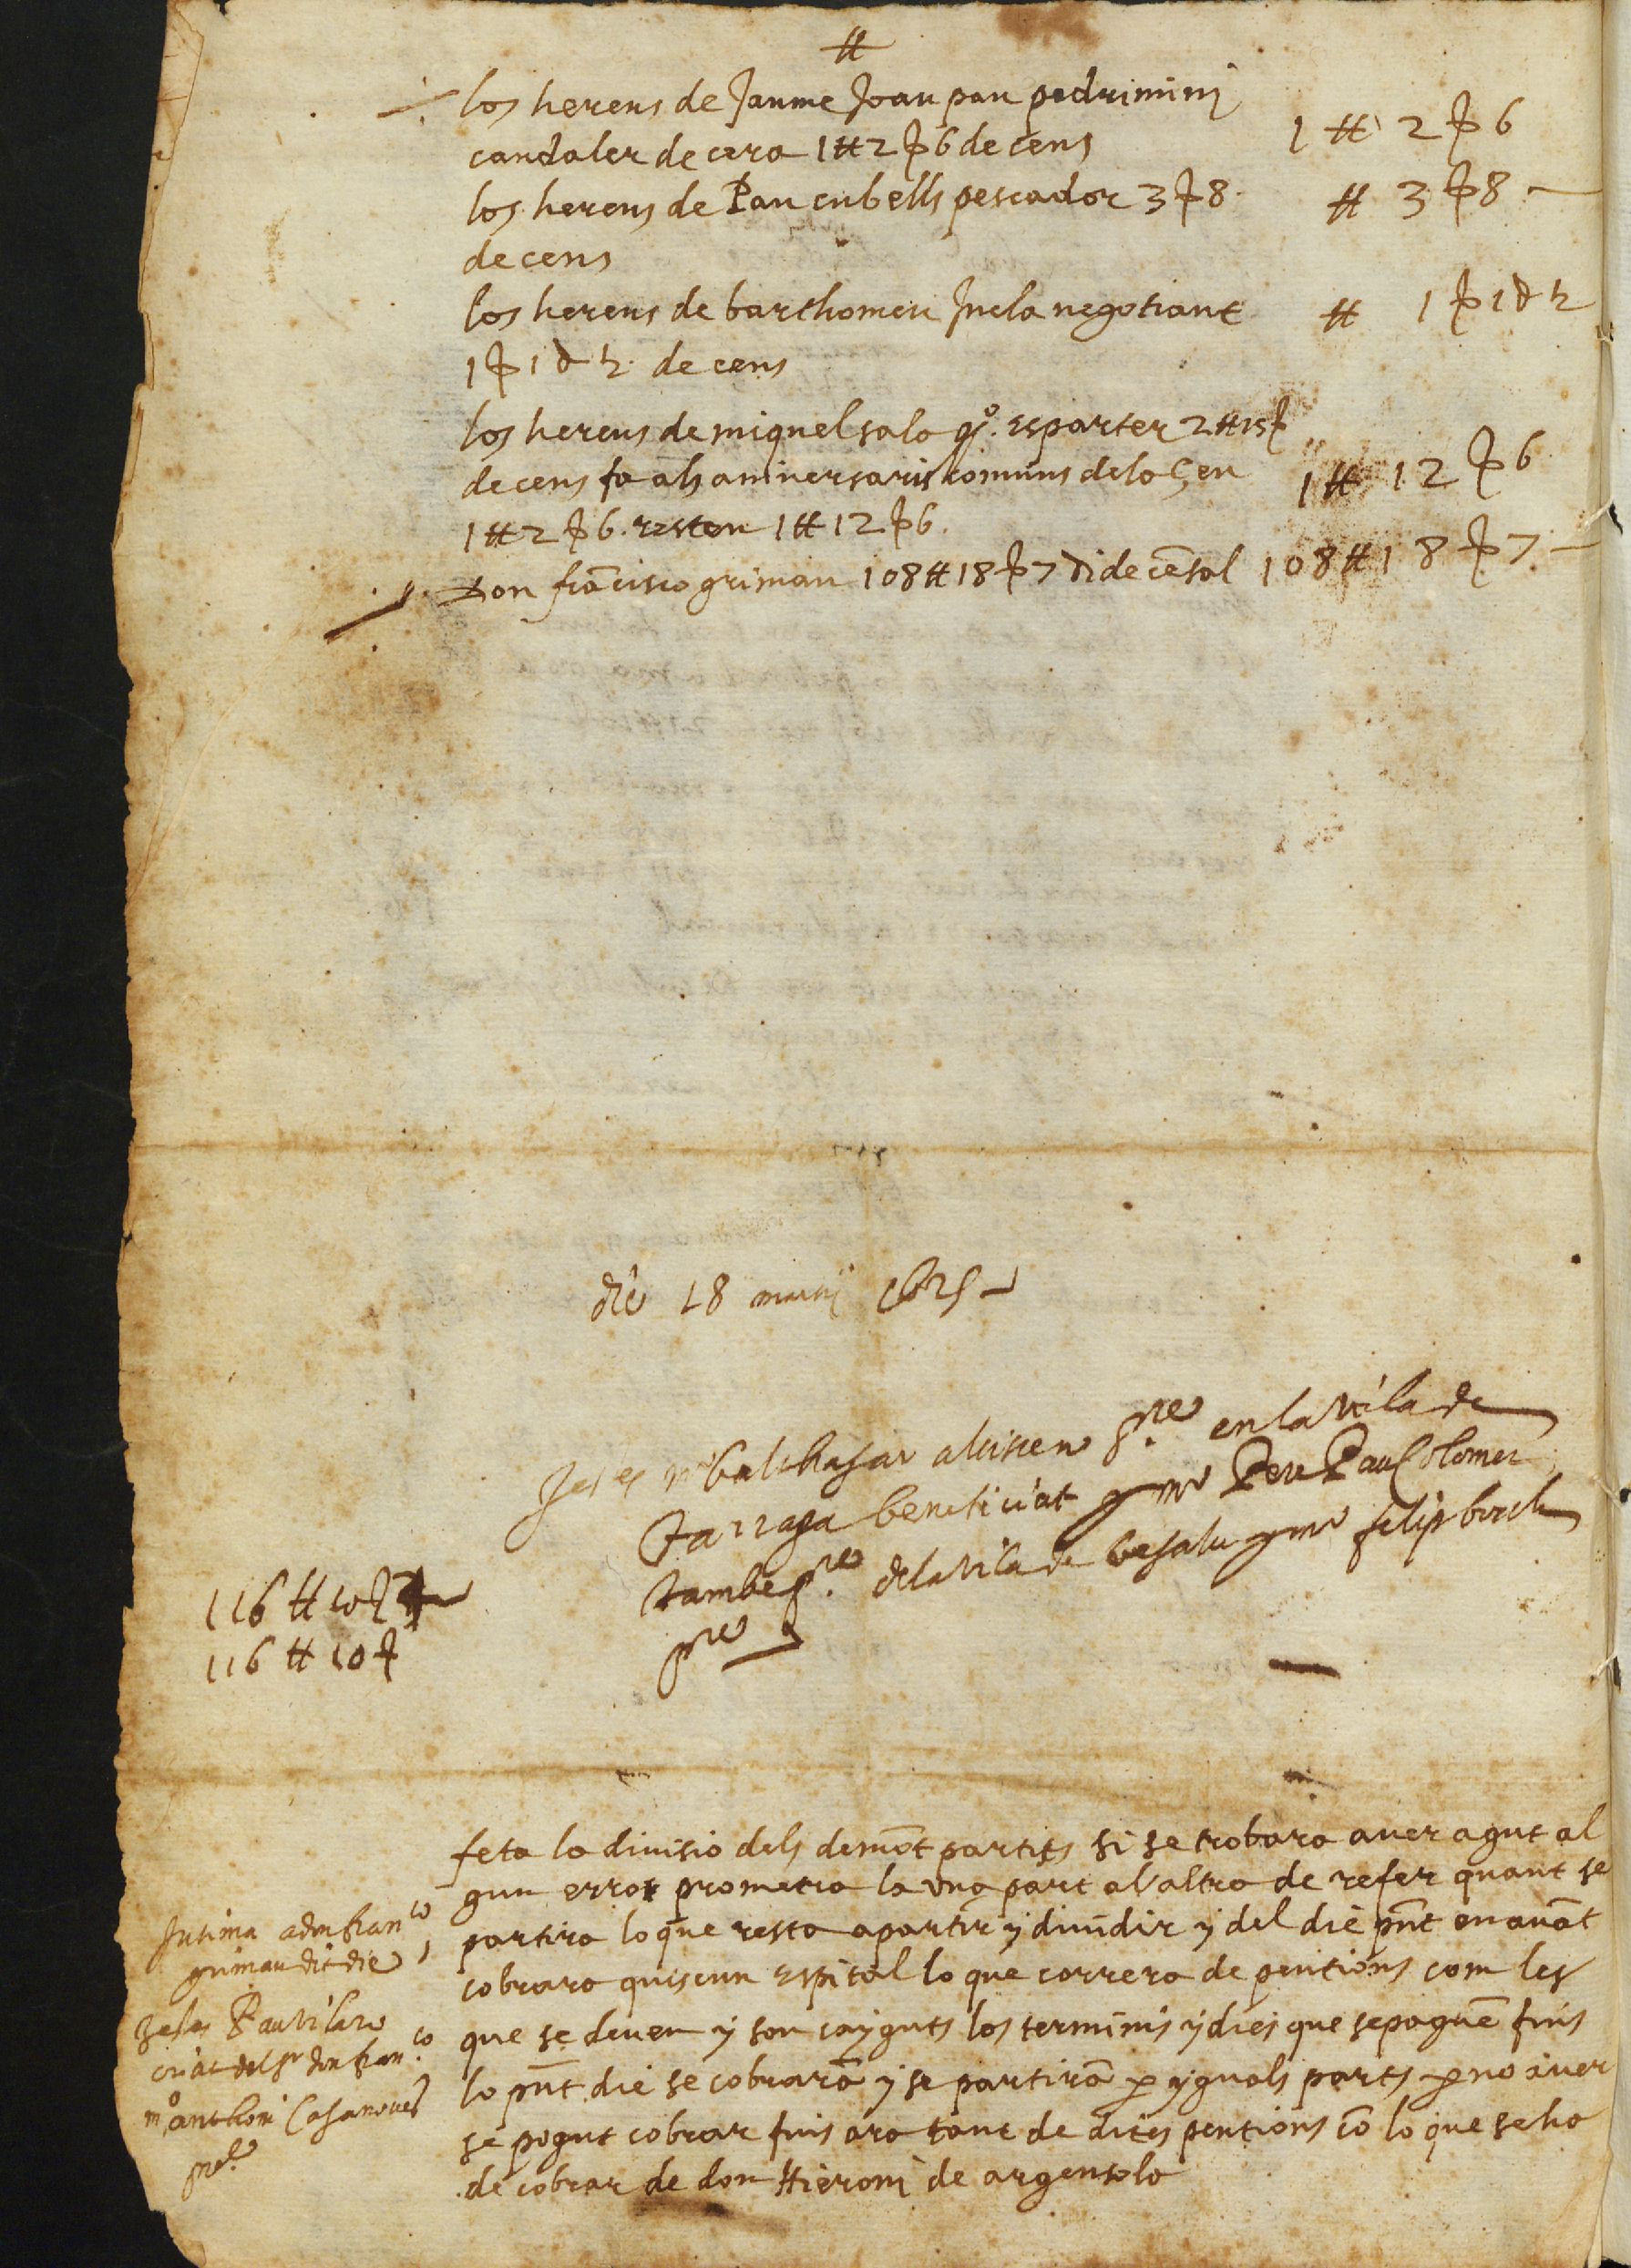 ℔
los hereus de Jaume Joan pau pedriminy
candaler de cera 1 ℔ 2 ẞ 6 de cens 1 ℔ 2 ẞ 6
los hereus de Pau cubells pescador 3 ẞ 8 ℔ 3 ẞ 8
de cens
los hereus de barthomeu negotiant ℔ 1 ẞ 1 d
1 ẞ 1 d de cens
los hereus de miquel salo qº. esparter 2 ℔ 15 ẞ
de cens fa als aniversaris comuns de la Seu 1 ℔ 12 ẞ 6
1 ℔ 2 ẞ 6. resten 1 ℔ 12 ẞ 6.
Don frãcisco grimau 108 ℔ 18 ẞ 7 di de cẽsal 108 ℔ 18 ẞ 7
die 18 1625
balthasar pre en la vila de
Tarraga beneficiat y mº Pere Pau Colomer
tambe pre de la vila de besalu y mº felip
pre
116 ℔ 10 ẞ
116 ℔ 10 ẞ
feta la divisio dels demõt partits si se trobara aver agut al
gun error prometra la una part al altra de refer quant se
partira lo que resta a partir y dividir y del die pnt en avãt
cobrara quiscun Espital lo que correra de pentions com les
que se deuen y son cayguts los terminis y dies que se paguẽ fins
lo pnt die se cobrarã y se partirã p yguals parts p no aver
se pogut cobrar fins ara tant de dites pentions cõ lo que se ha
de cobrar de don Hieroni de argensola
Intima a don franco
grimau dit die
testes Pau vilaro
criat del sr don franco
mº anthoni Casanoves
pre